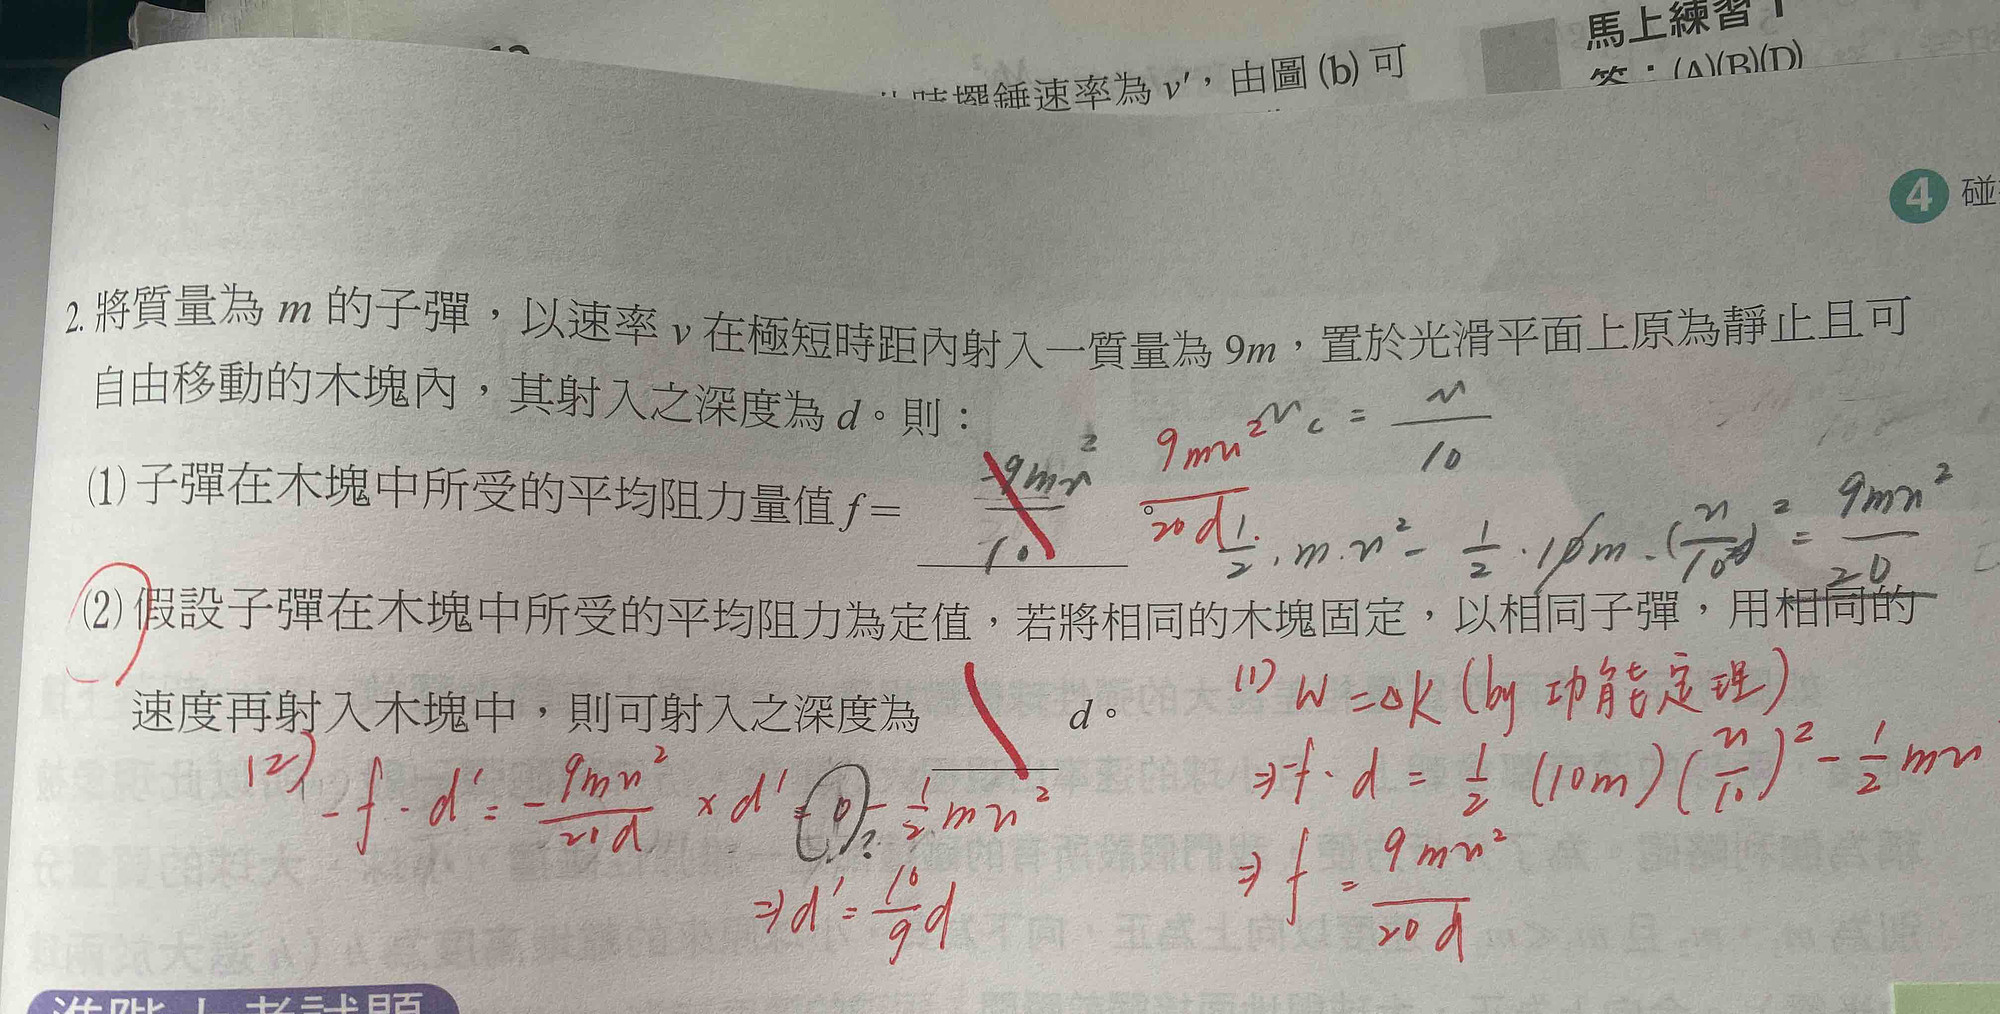 時擺錘速率為 v'，由圖 (b) 可
馬上練習 1
答：(A)(B)(D)
4 碰
2. 將質量為 m 的子彈，以速率 v 在極短時距內射入一質量為 9m，置於光滑平面上原為靜止且可
自由移動的木塊內，其射入之深度為 d。則：
v_c = v/10
(1) 子彈在木塊中所受的平均阻力量值 f = 9mv²/10 。
9mv²/20d
1/2 · m · v² - 1/2 · 10m · (v/10)² = 9mv²/20
(2) 假設子彈在木塊中所受的平均阻力為定值，若將相同的木塊固定，以相同子彈，用相同的
速度再射入木塊中，則可射入之深度為 d。
(1) W = ΔK (by 功能定理)
⇒ -f · d = 1/2 (10m)(v/10)² - 1/2 mv
⇒ f = 9mv²/20d
(2) -f · d' = -9mv²/20d × d' = 0 - 1/2 mv²
?
⇒ d' = 10/9 d
進階大考試題